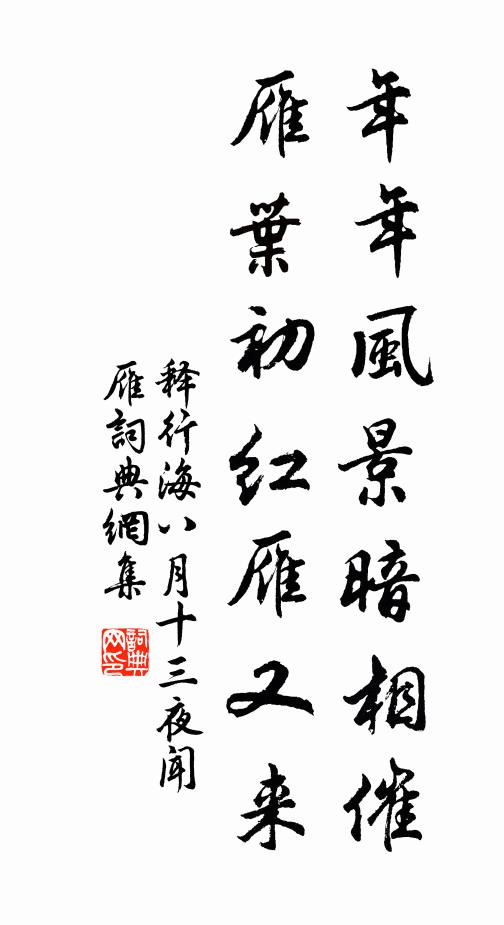 年年風景暗相催
雁葉初紅雁又来
释行海八月十三夜聞
雁詞典網集
詞典
网印